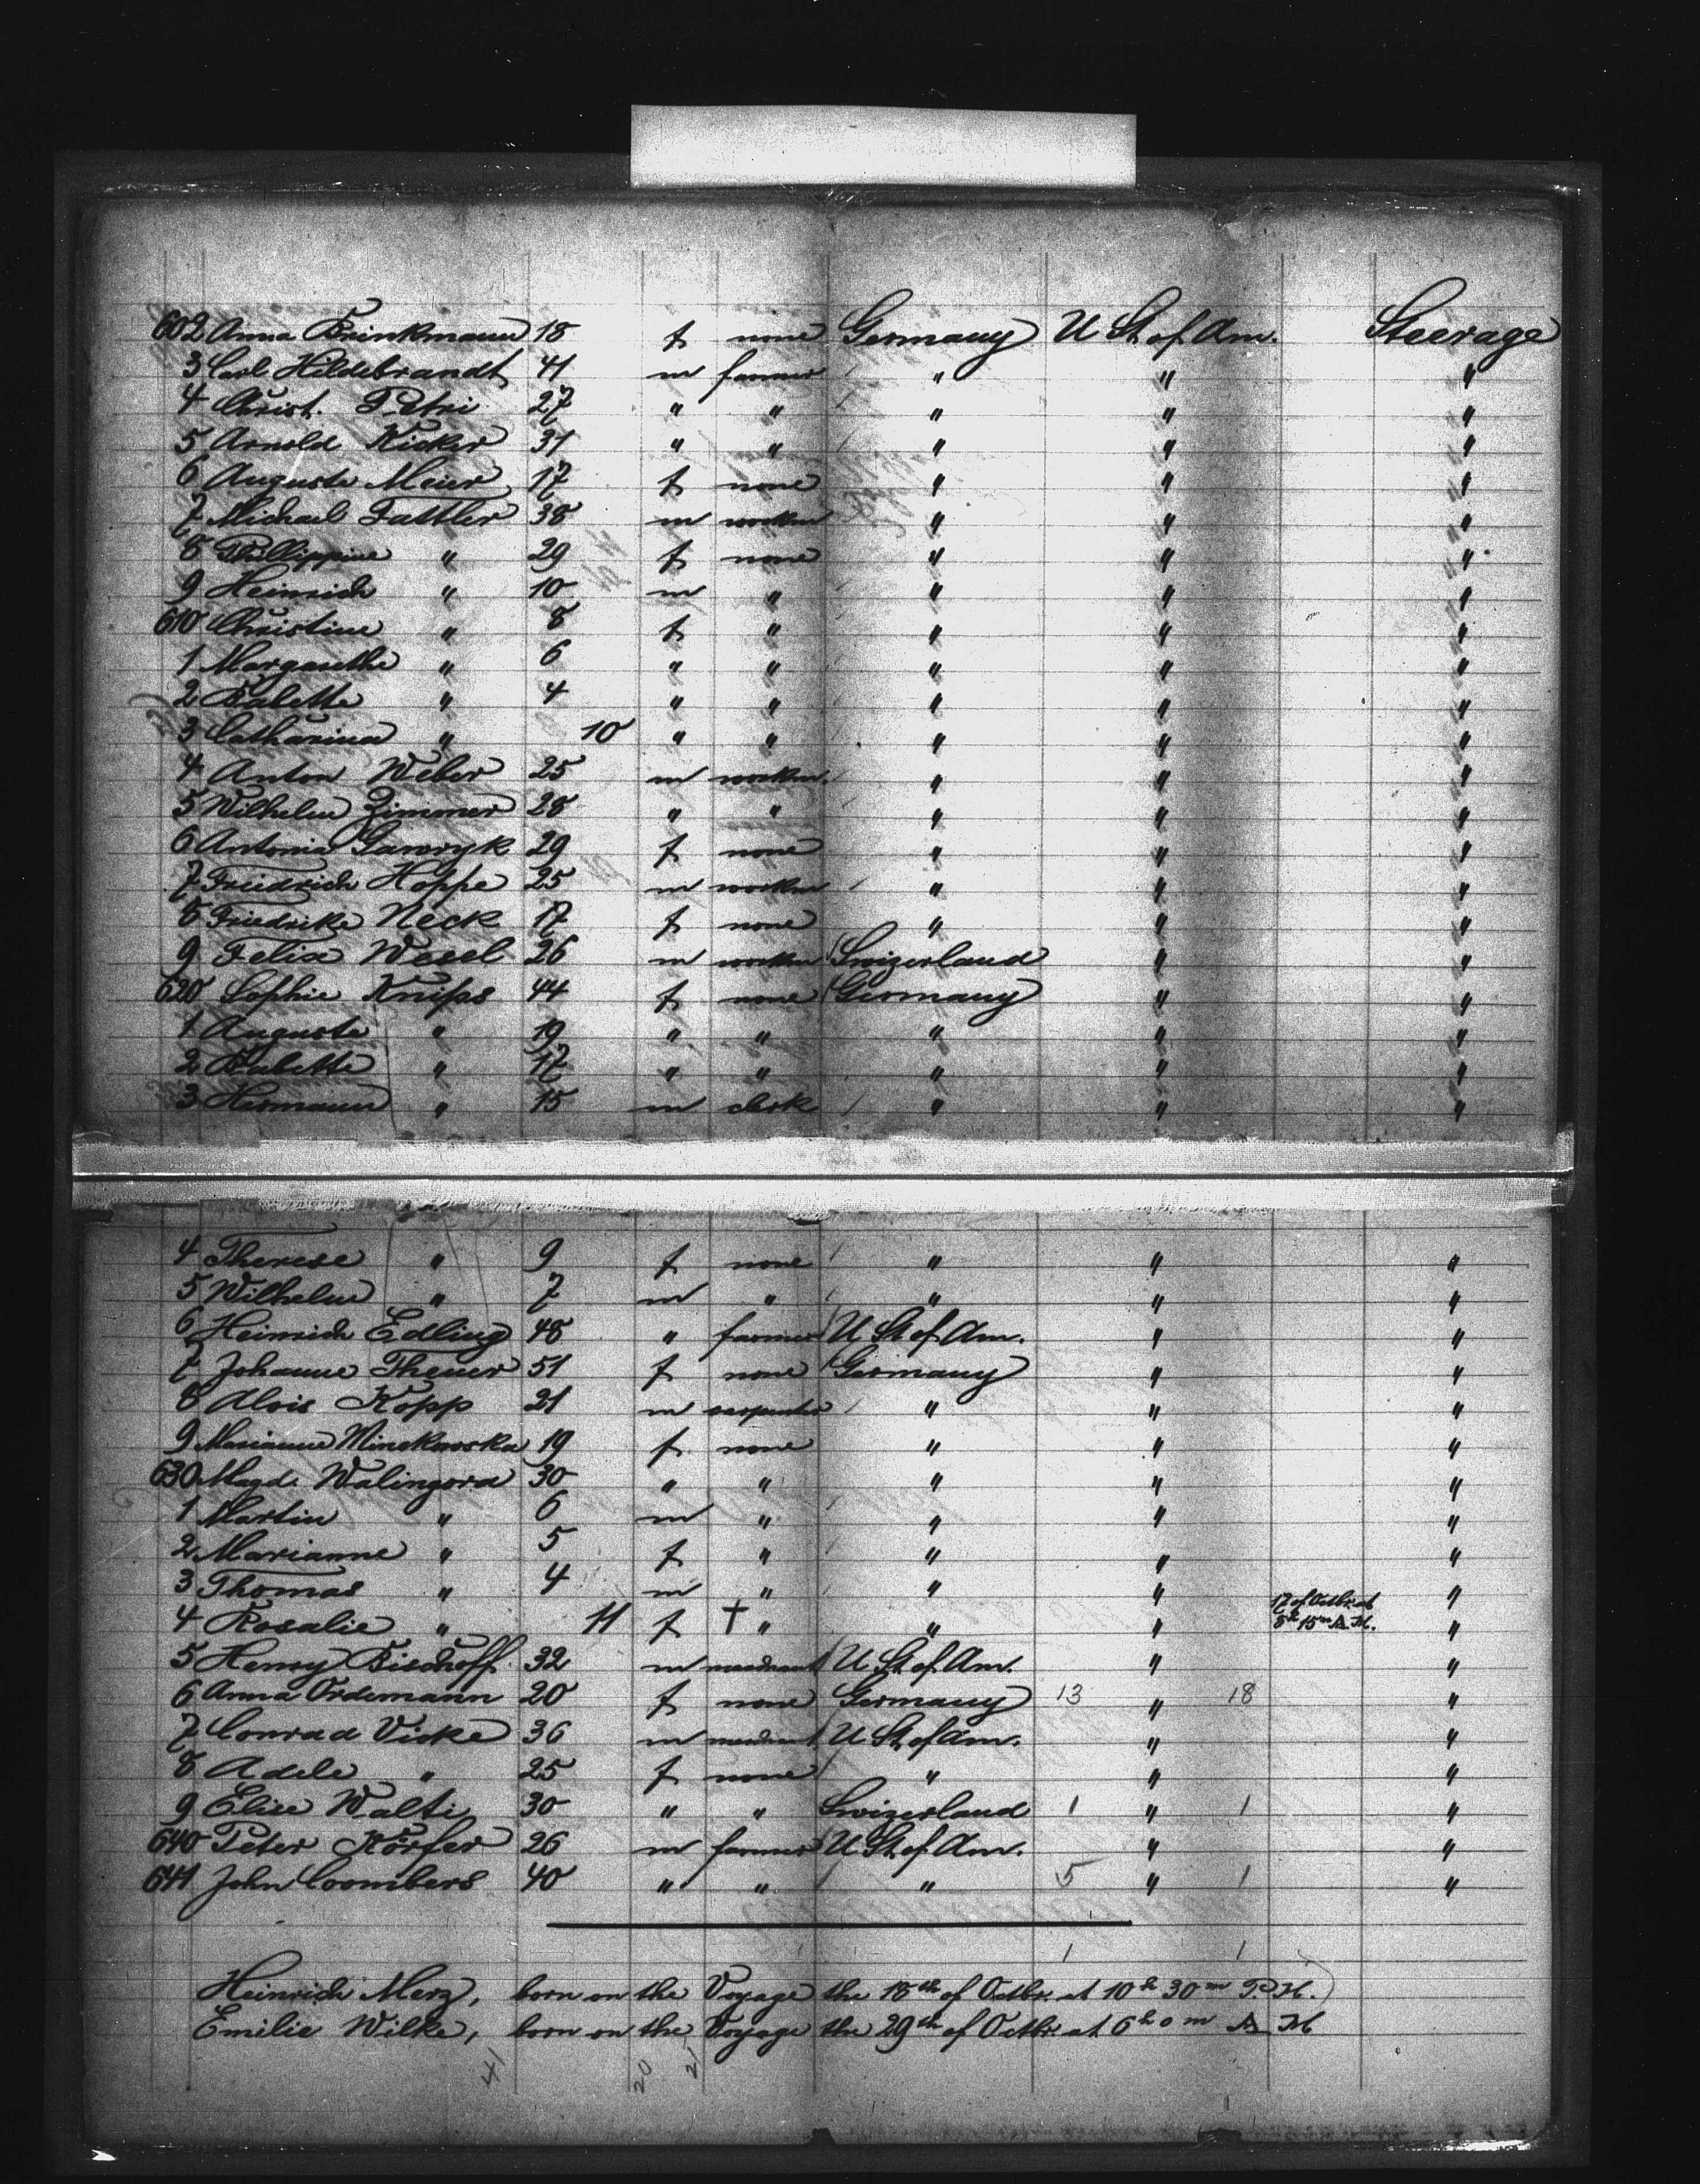 602 Anna Brinkmann 18 f none Germany U St of Am. Steerage
3 Carl Hildebrandt 41 m farmer " " "
4 Christ. Petri 27 " " " " "
5 Arnold Kicker 31 " " " " "
6 Auguste Meier 17 f none " " "
7 Michael Tattler 38 m workm " " "
8 Phillippine " 29 f none " " "
9 Heinrich " 10 m " " " "
610 Christine " 8 f " " " "
1 Margarethe " 6 " " " " "
2 Babette " 4 " " " " "
3 Catharina " 10 " " " " "
4 Anton Weber 25 m workm. " " "
5 Wilhelm Zimmer 28 " " " " "
6 Antonia 29 f none " " "
7 Friedrich Hoppe 25 m workm " " "
8 Friedrike Neck 17 f none " " "
9 Felix Wesel 26 m workm Swizerland " "
620 Sophie Knips 44 f none Germany " "
1 Auguste " 19 " " " " "
2 Babette " 17 " " " " "
3 Hermann " 15 m clerk " " "
4 Therese " 9 f none " " "
5 Wilhelm " 7 m " " " "
6 Heinrich Edling 48 " farmer U St of Am. " "
7 Johanne Theuer 51 f none Germany " "
8 Alois Kopp 21 m carpenter " " "
9 Marianne Minckowska 19 f none " " "
630 Magd. Walingora 30 " " " " "
1 Martin " 6 m " " " "
2 Marianne " 5 f " " " "
3 Thomas " 4 m " " " "
4 Rosalie " 11 f † " " " 17 of Octbr. at 8h 15m A.M. "
5 Henry Bischoff 32 m merchant U. St. of. Am. " "
6 Anna Ordemann 20 f none Germany 13 " 18 "
7 Conrad Vicke 36 m merchant U St of Am. " "
8 Adele " 25 f none " " "
9 Elise Walti 30 " " Swizerland 1 " 1 "
640 Peter Körfer 26 m farmer U St of Am. " "
641 John Coombers 40 " " " 5 " 1 "
1 1
Heinrich Merz, born on the Voyage the 18th of Octbr. at 10h 30m P.M.
Emilie Wilke, born on the Voyage the 29th of Octbr at 6h 0m A M
41 20 21